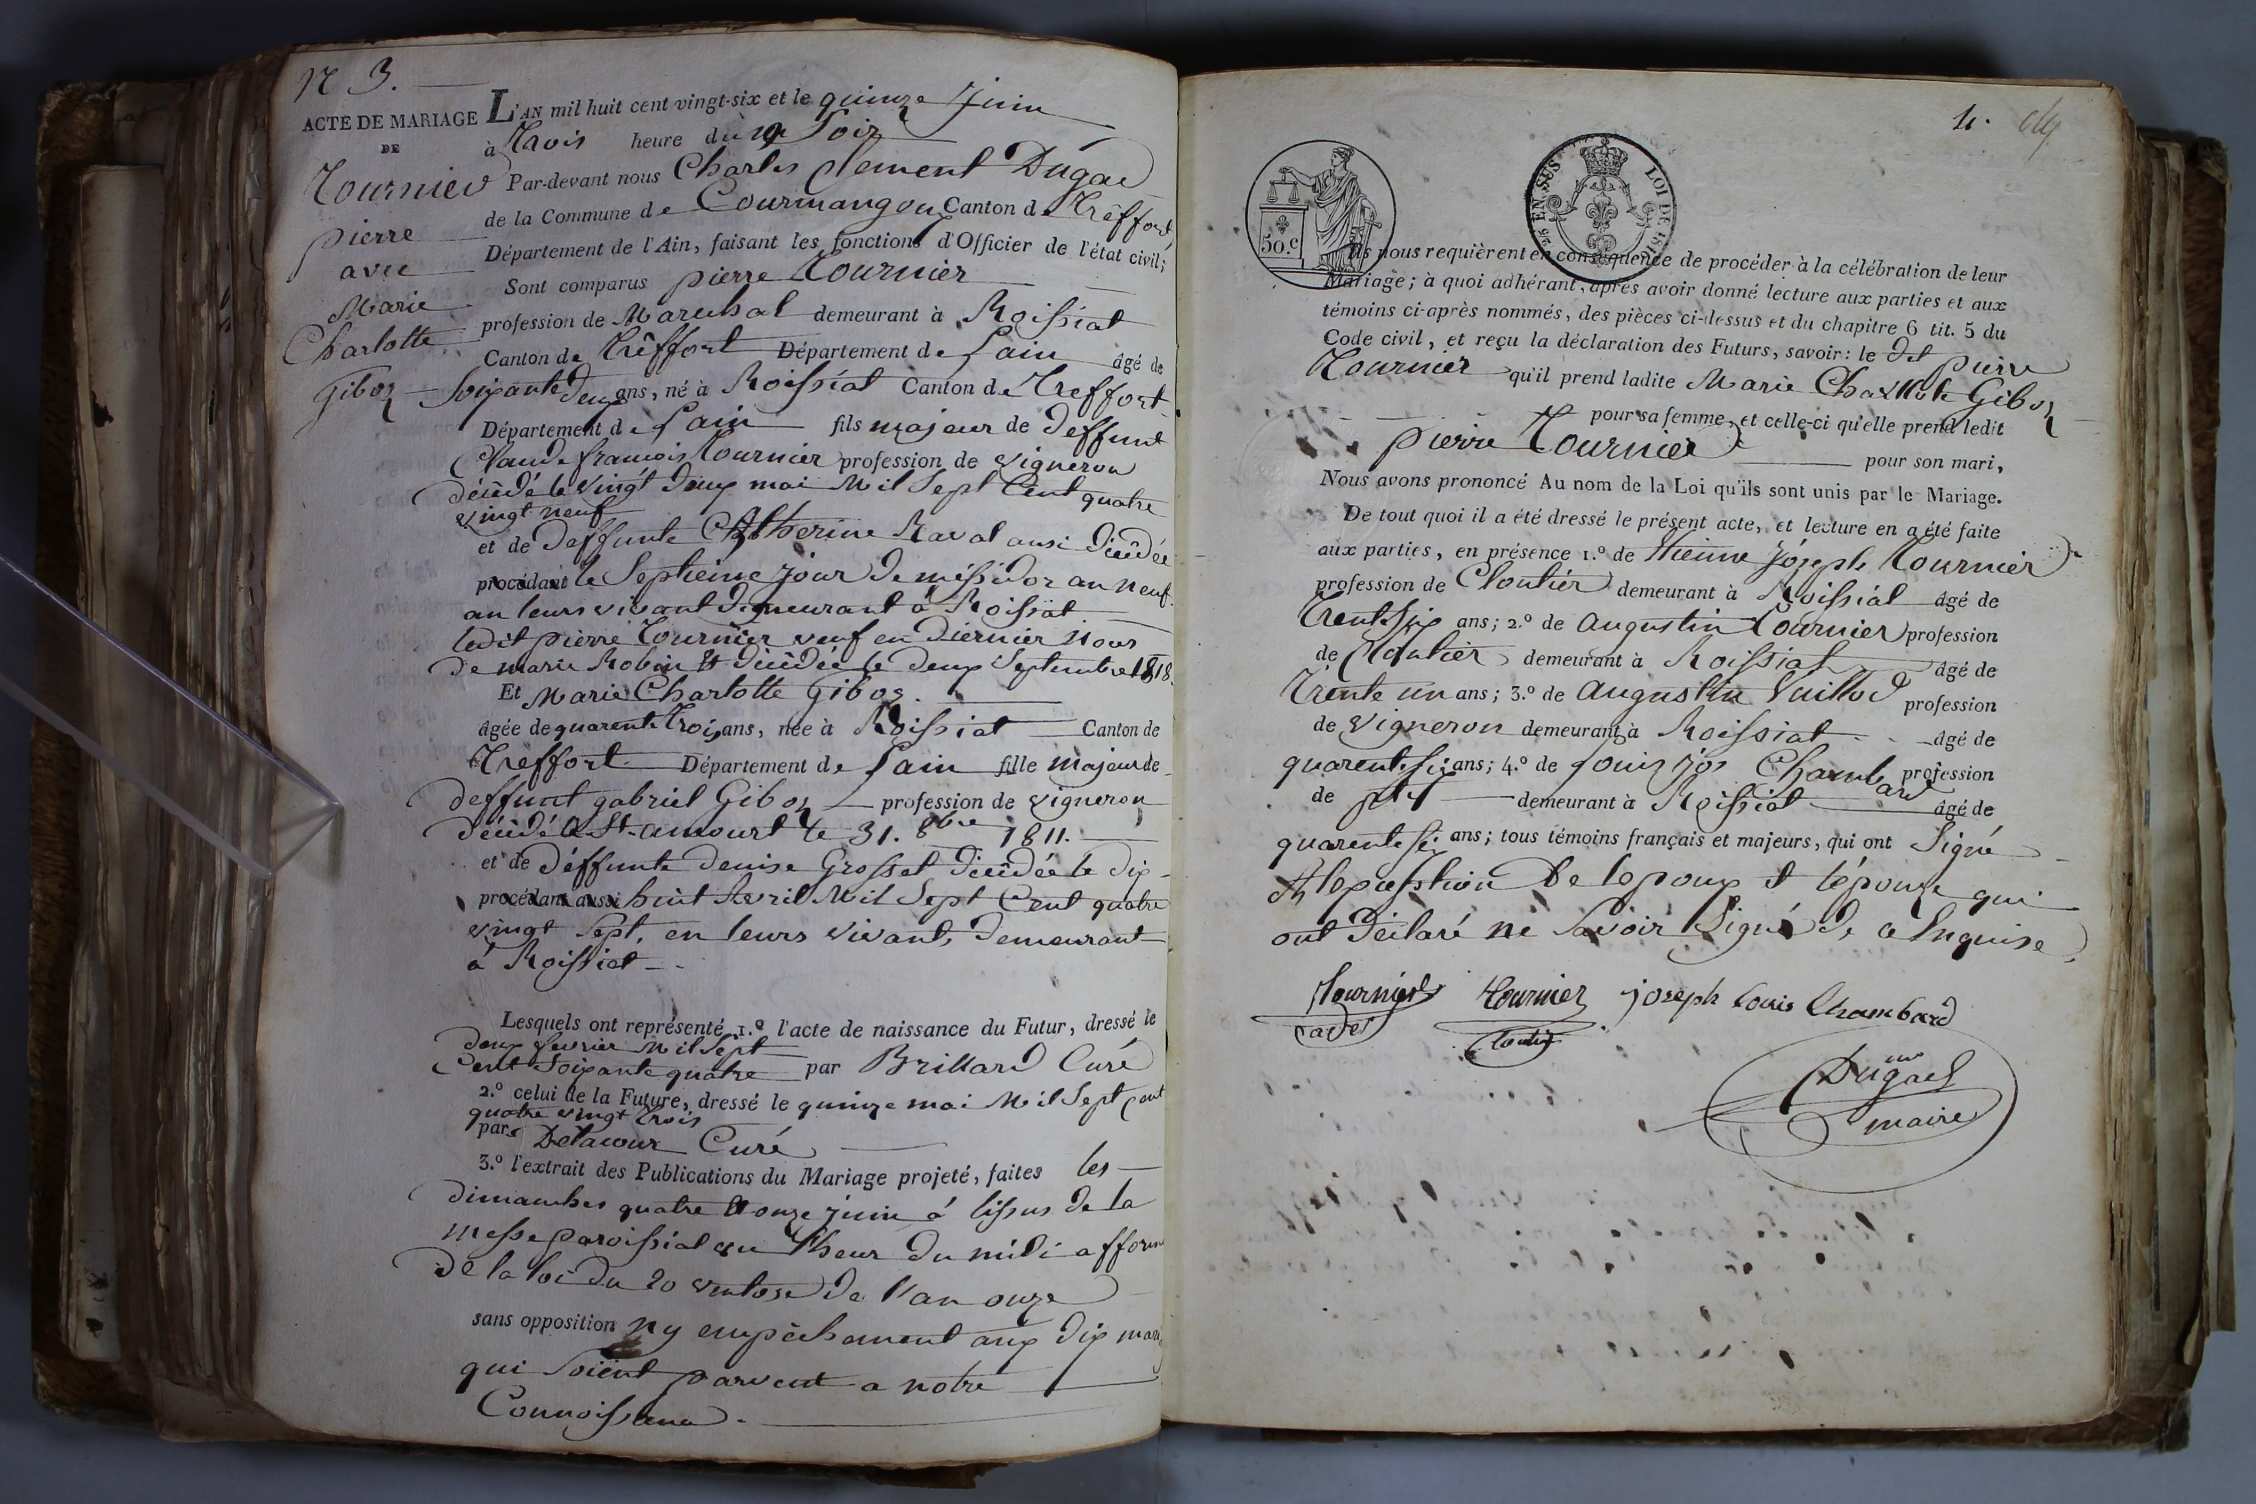 N 3.
ACTE DE MARIAGE
DE
Tournier
pierre
avec
Marie
Charlotte
Giboz
L'AN mil huit cent vingt-six et le quinze Juin
à Trois heure du Soir
Par-devant nous Charles Clement Dugad
de la Commune de Courmangoux Canton de Trêffort
Département de l'Ain, faisant les fonctions d'Officier de l'état civil;
Sont comparus pierre Tournier
profession de Marechal demeurant à Roissiat
Canton de Trêffort Département de Lain âgé de
Soixante deux ans, né à Roissiat Canton de Treffort
Département de Lain fils majeur de deffunt
Claude francois Tournier profession de vigneron
décédé le vingt deux mai Mil Sept Cent quatre
vingt neuf
et de deffunte Catherine Raval ausi décédée
procédant le Septieme jour de méssidor an neuf
an leurs vivant demeurant à Roissiat
ledit pierre Tournier veuf en diernier Nous
de marie Robin décédée le deux Septembre 1818.
Et Marie Charlotte Giboz
âgée de quarente trois ans, née à Roissiat Canton de
Treffort Département de Lain fille majeur de
deffunt gabriel Giboz profession de vigneron
décédé a St. amourt le 31. 8bre 1811.
et de déffunte denise Grosset décédée le dix
procédant aussi huit Avril Mil Sept Cent quatre
vingt Sept, en leurs vivant, demeurant
a Roissiat
Lesquels ont représenté 1.º l'acte de naissance du Futur, dressé le
deux fevrier Mil Sept
Cent Soixante quatre par Brillard Curé
2.º celui de la Future, dressé le quinze mai Mil Sept Cent
quatre vingt trois
par Delacour Curé
3.º l'extrait des Publications du Mariage projeté, faites les
dimanches quatre et onze juin á lissus de la
Messe paroissial l'heur du midi a fform
de la loi du 20 ventose de l'an onze
sans opposition ny empêchement aux dix mari
qui Soient parvent a notre
Connoissance.
11.
50.c
25 EN SUS LOI DE 1816
Ils nous requièrent en conséquence de procéder à la célébration de leur
Mariage; à quoi adhérant, après avoir donné lecture aux parties et aux
témoins ci-après nommés, des pièces ci-dessus et du chapitre 6 tit. 5 du
Code civil, et reçu la déclaration des Futurs, savoir: le dit pierre
Tournier qu'il prend ladite Marie Charllote Giboz
pour sa femme, et celle-ci qu'elle prend ledit
pierre Tournier pour son mari,
Nous avons prononcé Au nom de la Loi qu'ils sont unis par le Mariage.
De tout quoi il a été dressé le présent acte, et lecture en a été faite
aux parties, en présence 1.º de Etienne Jóseph Tournier
profession de Cloutier demeurant à Roissiat âgé de
Trente Six ans; 2.º de augustin Tournier profession
de Cloutier demeurant à Roissiat âgé de
Trente un ans; 3.º de augustin Vuillod profession
de vigneron demeurant à Roissiat âgé de
quarente six ans; 4.º de Louis jos Chambard profession
de demeurant à Roissiat âgé de
quarente six ans; tous témoins français et majeurs, qui ont Signé
a lexcesption de lepoux et lépouze qui
ont déclaré ne Savoir Signé de a Enquise
Tournier Tournier joseph Louis Chambard
cadet
Dugad
maire